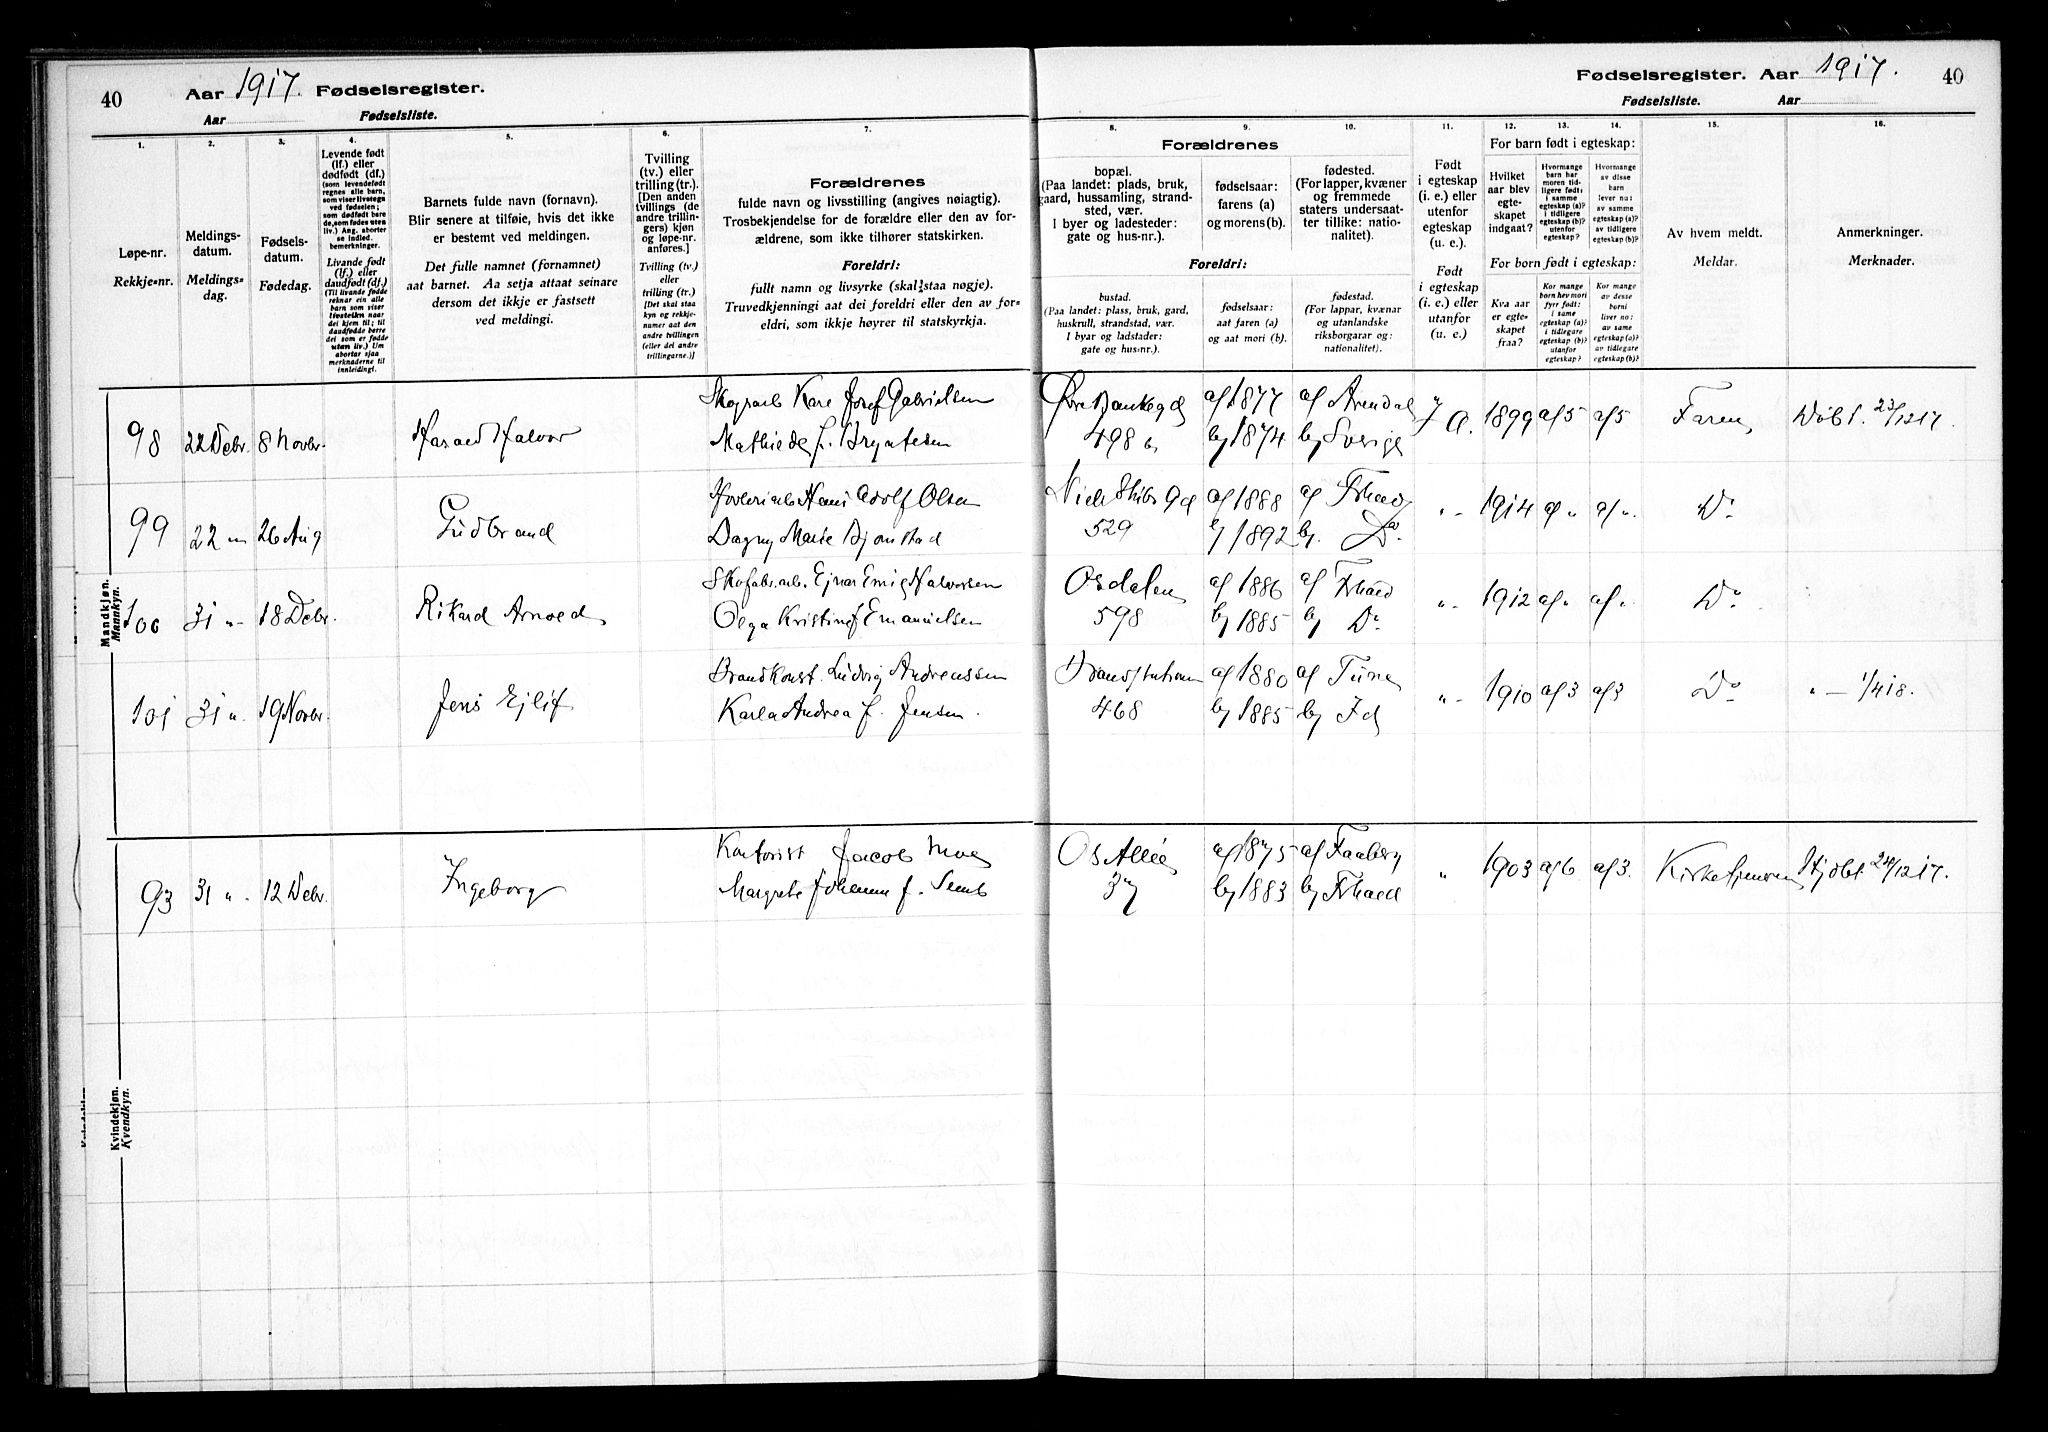 40 Aar 1917. Fødselsregister.
Aar Fødselsliste.
Fødselsregister. Aar 1917. 40
Fødselsliste. Aar
1. 2. 3. 4. 5. 6. 7.
8. 9. 10. 11. 12. 13. 14. 15. 16.
Løpe-nr.
Rekkje-nr.
Meldings-
datum.
Meldings-
dag.
Fødsels-
datum.
Fødedag.
Levende født
(lf.) eller
dødfødt (df.)
(som levendefødt
regnes alle barn,
som viser livstegn
ved fødselen;
som dødfødt bare
de, som fødes uten
liv.) Ang. aborter
se indled.
bemerkninger.
Livande født
(lf.) eller
daudfødt (df.)
(Til livande fødde
reknar ein alle
barn som viser
livsteikn naar
dei kjem til; til
daudfødde berre
dei som er fødde
utan liv.) Um
abortar sjaa
merknaderne til
innleidingi.
Barnets fulde navn (fornavn).
Blir senere at tilføie, hvis det ikke
er bestemt ved meldingen.
Det fulle namnet (fornamnet)
aat barnet. Aa setja attaat seinare
dersom det ikkje er fastsett
ved meldingi.
Tvilling
(tv.) eller
trilling (tr.).
[Den anden
tvillings (de
andre trillin-
gers) kjøn
og løpe-nr.
anføres.]
Tvilling (tv.)
eller
trilling (tr.)
[Det skal staa
kyn og rekkje-
numer aat den
andre tvillingen
(eller dei andre
trillingarne.)]
Forældrenes
fulde navn og livsstilling (angives nøiagtig).
Trosbekjendelse for de forældre eller den av for-
ældrene, som ikke tilhører statskirken.
Foreldri:
fullt namn og livsyrke (skal staa nøgje).
Truvedkjenningi aat dei foreldri eller den av for-
eldri, som ikkje høyrer til statskyrkja.
Forældrenes
bopæl.
(Paa landet: plads, bruk,
gaard, hussamling, strand-
sted, vær.
I byer og ladesteder:
gate og hus-nr.).
fødselsaar:
farens (a)
og morens (b).
fødested.
(For lapper, kvæner
og fremmede
staters undersaat-
ter tillike: natio-
nalitet).
Foreldri:
bustad.
(Paa landet: plass, bruk, gard,
huskrull, strandstad, vær.
I byar og ladstader:
gate og hus-nr.).
fødselsaar:
aat faren (a)
og aat mori (b).
fødestad.
(For lappar, kvænar
og utanlandske
riksborgarar og:
nationalitet).
Født
i egteskap
(i. e.) eller
utenfor
egteskap
(u. e.).
Født
i egteskap
(i. e.) eller
utanfor
(u. e.)
For barn født i egteskap:
Hvilket
aar blev
egte-
skapet
indgaat?
Hvormange
barn har
moren tid-
ligere født:
i samme
egteskap (a)?
i tidligere
egteskap (b)?
utenfor
egteskap?
Hvormange
av disse
barn
lever nu:
av samme
egteskap (a)?
av tidligere
egteskap (b)?
For born født i egteskap:
Kva aar
er egte-
skapet
fraa?
Kor mange
born hev mori
fyrr født:
i same
egteskap (a)?
i tidlegare
egteskap (b)?
utanfor
egteskap?
Kor mange
av desse
borni
liver no:
av same
egteskap (a)?
av tidlegare
egteskap (b)?
Av hvem meldt.
Meldar.
Anmerkninger.
Merknader.
Mandkjøn.
Mannkyn.
98 22 Debr. 8 Novbr. Harald Halvor
Karl Josef Gabrielsen
Mathilde f. Bryntesen
Øvre Bankegd a/ 1877 a/ Arendal
498 b/ 1874 b/ Sverige
1899 a/5 a/5 Faren Døbt 23/12 17.
99 22 26 Aug Gudbrand
Hans Adolf Olsen
Dagny Marie Bjønstad
Niels Stubs Gd a/ 1888 a/ Frhald
529 b/ 1892 b/ Do
1914 a/ „ a/ „ Do
100 31 „ 18 Debr. Rikard Arnold
Skofabr.arb. Ejnar Emil Halvorsen
Olga Kristine f. Emanuelsen
Osdalen a/ 1886 a/ Frhald
598 b/ 1885 b/ Do
1912 a/ „ a/ „ Do
101 31 „ 19 Novbr. Jens Ejlif
Brandkonst. Ludvig Andreassen
Karla Andrea f. Jensen.
Brandstationen a/ 1880 a/ Tune
468 b/ 1885 b/ Id
1910 a/3 a/3 Do „ — 1/4 18.
Kvindekjøn.
Kvendkyn.
93 31 „ 12 Debr. Ingeborg
Kontorist Jacob Moe
Margrete Johanne f. Semb
Os Allée a/ 1875 a/ Faaberg
37 b/ 1883 b/ Frhald
„ 1903 a/6 a/3. Kirketjeneren Hjdbt. 24/12 17.